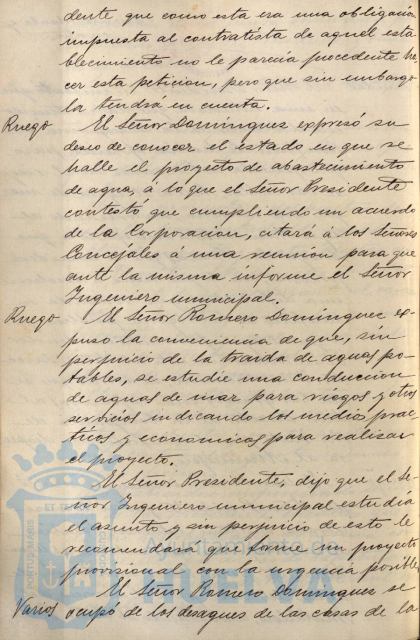 dente que como esta era una obligacion
impuesta al contratista de aquel esta
blecimiento no le parecia procedente ha
cer esta peticion, pero que sin embargo
lo tendrá en cuenta.
Ruego El Señor Dominguez expresó su
deseo de conocer el estado en que se
halle el proyecto de abastecimiento
de agua, á lo que el Señor Presidente
contestó que cumpliendo un acuerdo
de la Corporacion, citará á los Señores
Concejales á una reunión para que
ante la misma informe el Señor
Ingeniero municipal.
Ruego El Señor Romero Dominguez ex-
puso la conveniencia de que, sin
perjuicio de la traida de aguas po-
tables, se estudie una conduccion
de aguas de mar para riegos y otros
servicios indicando los medios prac
ticos y economicos para realizar
el proyecto.
El Señor Presidente, dijo que el Se-
ñor Ingeniero municipal estudia
el asunto y sin perjuicio de esto le
recomendará que forme un proyecto
provisional con la urgencia posible.
Varios El Señor Romero Dominguez se
ocupó de los desagues de las casas de la